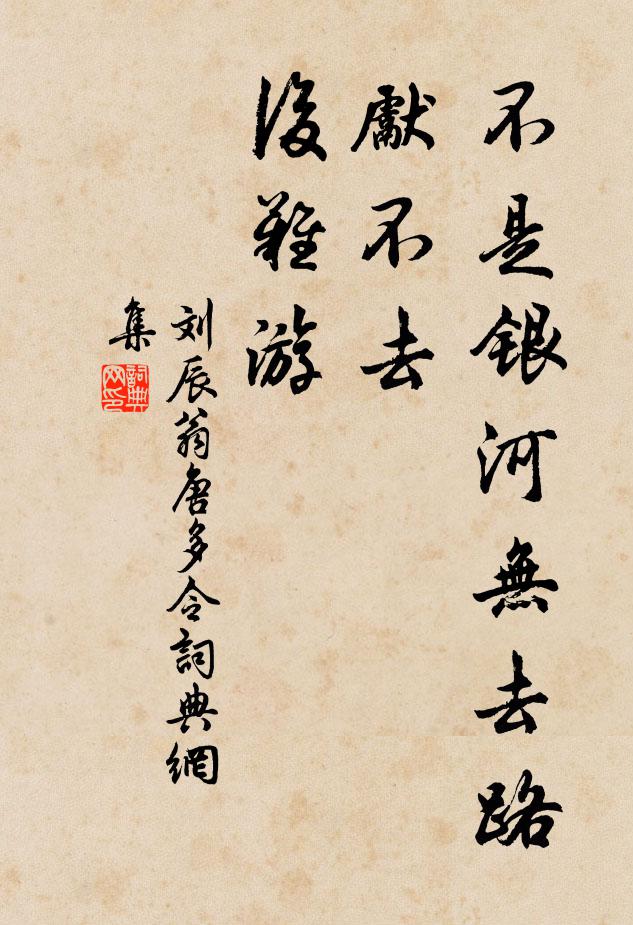 不是銀河無去路
獻不去
後難游
刘辰翁唐多令詞典網
集
詞典
网印